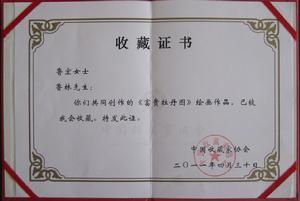 收藏证书
鲁宏女士
鲁林先生：
你们共同创作的《富贵牡丹图》绘画作品，已被
我会收藏。特发此证。
中国收藏家协会
二〇一一年四月三十日